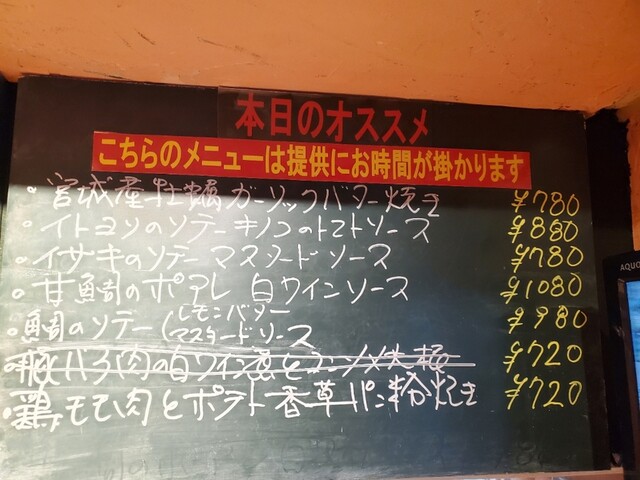 本日のオススメ
こちらのメニューは提供にお時間が掛かります
・宮城産牡蠣ガーリックバター焼き ¥780
・イトヨリのソテーキノコのトマトソース ¥880
・イサキのソテーマスタードソース ¥780
・甘鯛のポアレ 白ワインソース ¥1080
・鯛のソテー(レモンバター
マスタードソース ¥980
・豚バラ肉の白ワイン煮とコーン ¥720
・鶏モモ肉とポテト香草パン粉焼き ¥720
AQUO